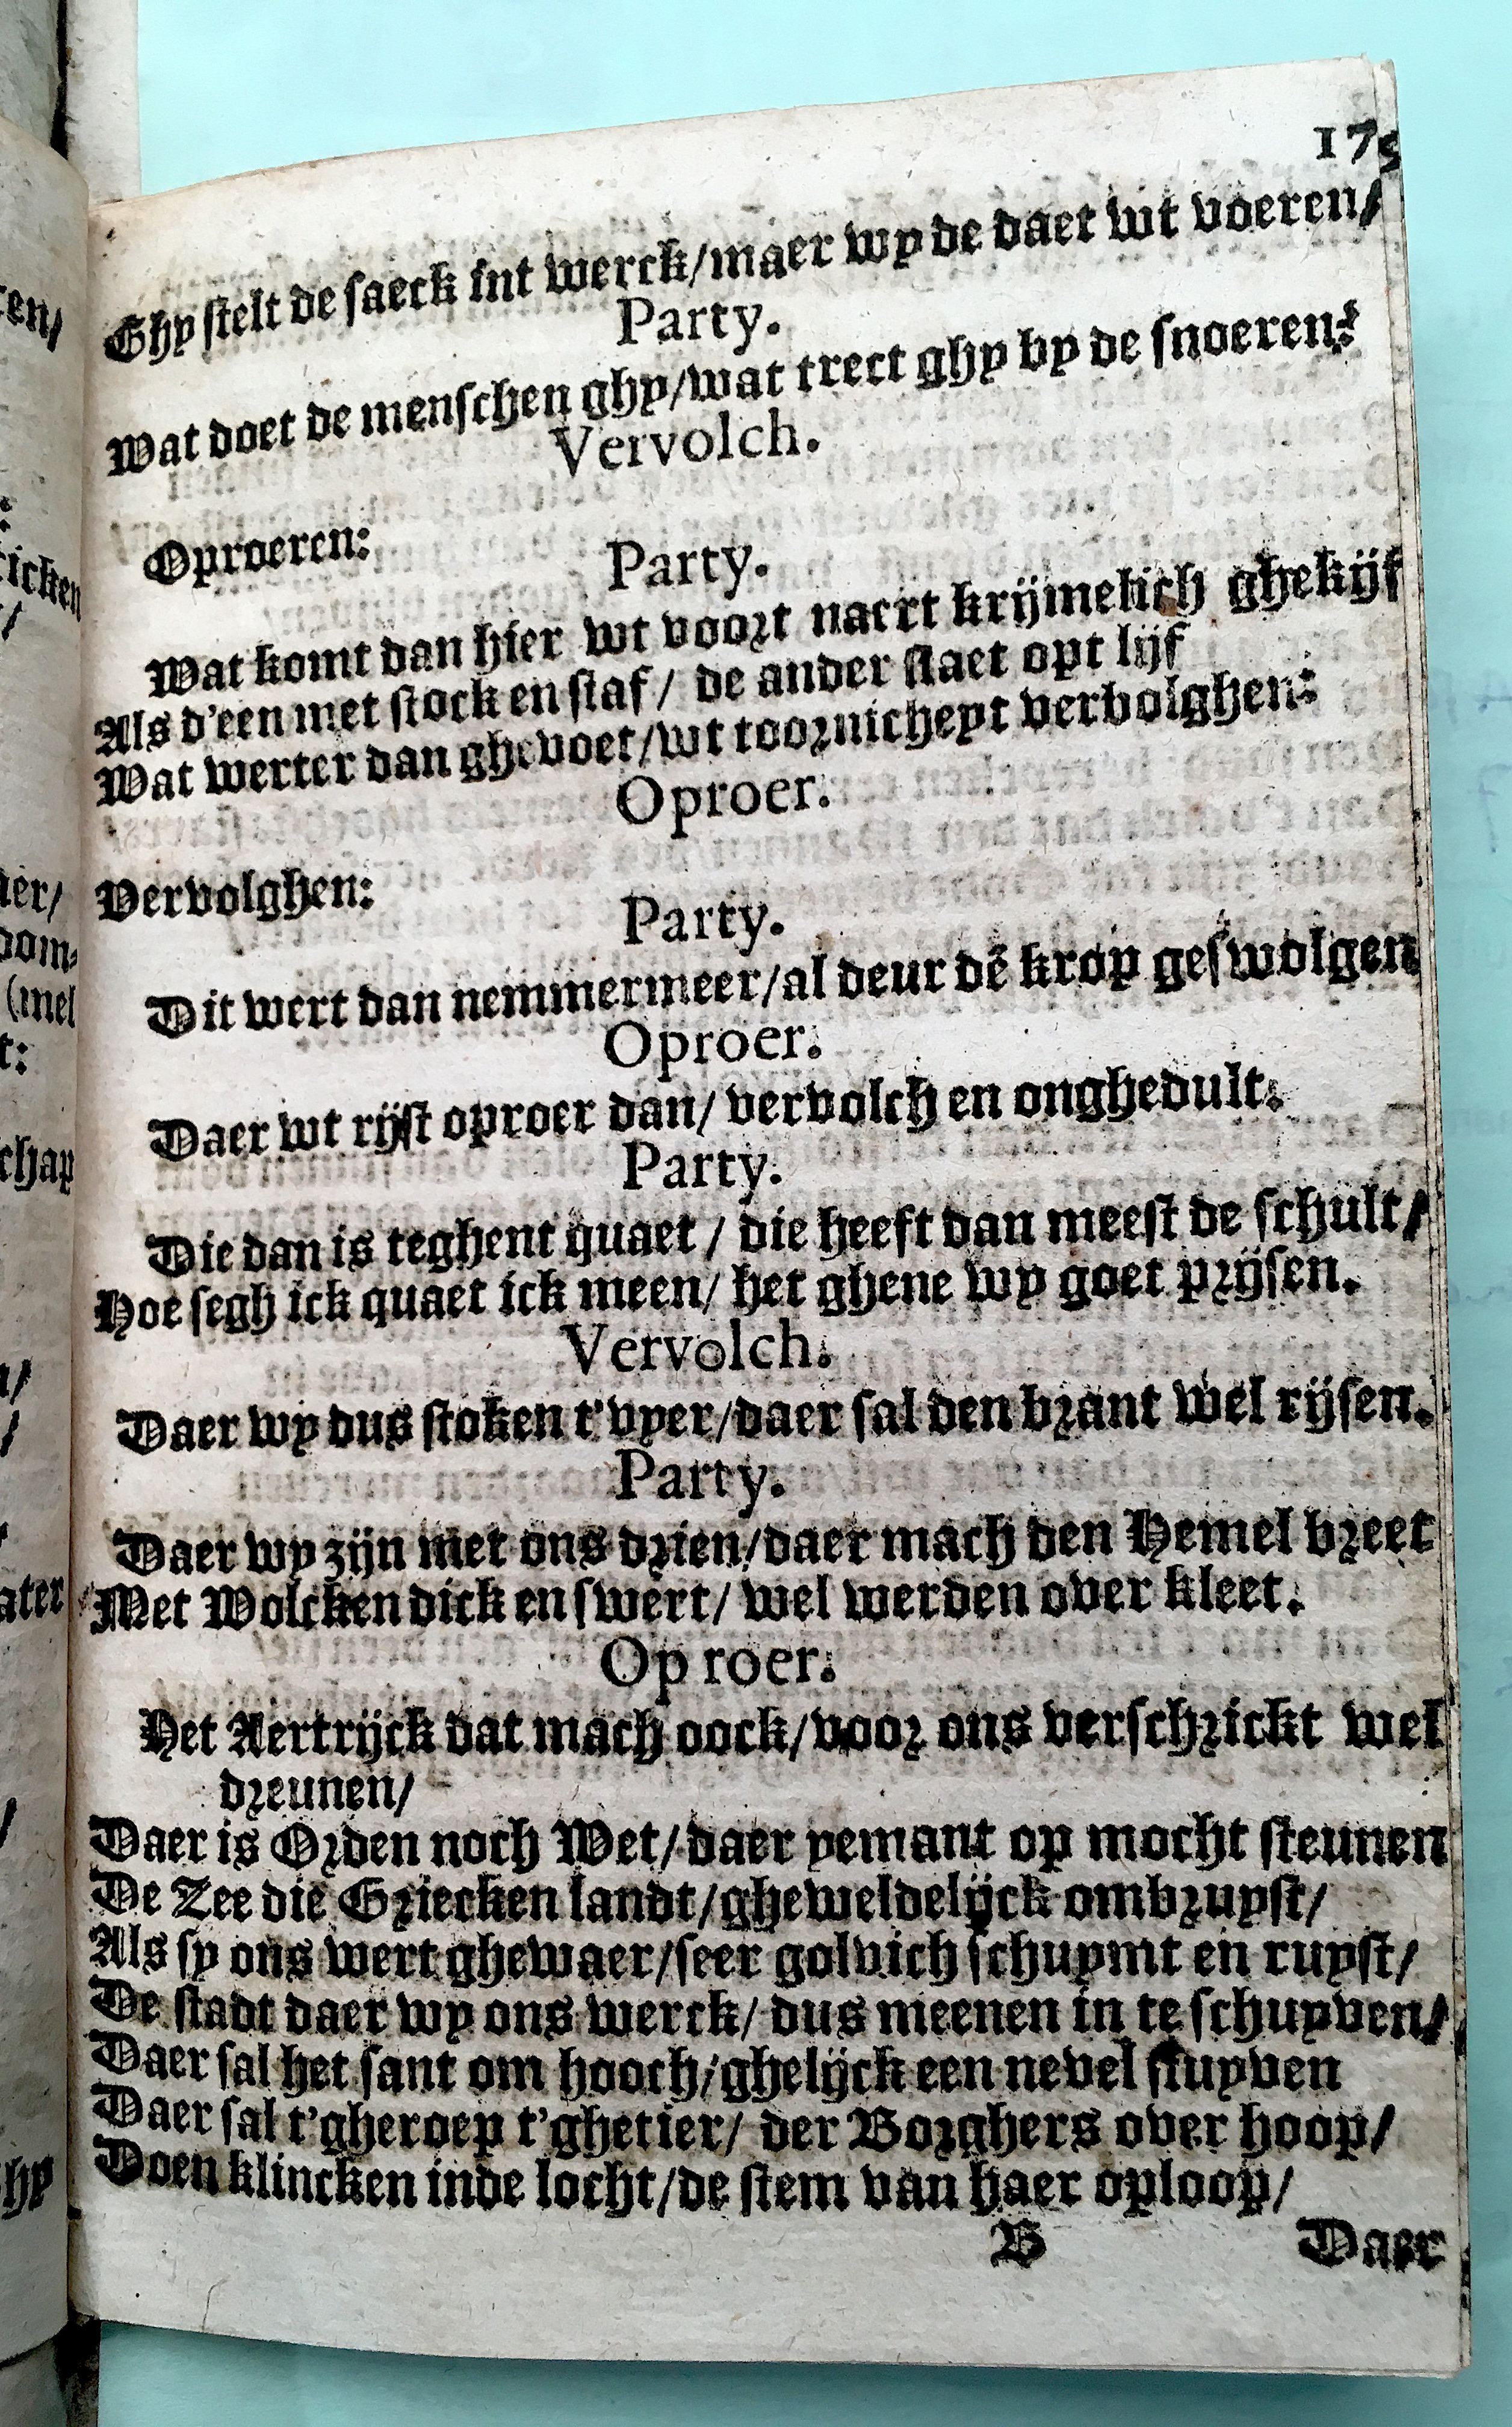 175
Ghy stelt de saeck int werck/maer wy de daet wt voeren/
Party.
Wat doet de menschen ghy/wat trect ghy by de snoeren?
Vervolch.
Oproeren:
Party.
Wat komt dan hier wt voort naert krijmelich ghekijf
Als d'een met stock en staf/ de ander staet opt lijf
Wat werter dan ghevoet/wt toornicheyt vervolghen:
Oproer.
Vervolghen:
Party.
Dit wert dan nemmermeer/al deur dē krop geswolgen
Oproer.
Daer wt rijst oproer dan/ vervolch en onghedult.
Party.
Die dan is teghent quaet / die heeft dan meest de schult/
Hoe segh ick quaet ick meen/ het ghene wy goet prijsen.
Vervolch.
Daer wy dus stoken t'vyer/daer sal den brant wel rijsen.
Party.
Daer wy zijn met ons drien/daer mach den Hemel breet
Met Wolcken dick en swert/ wel werden over kleet.
Op roer.
Het Aertrijck dat mach oock/voor ons verschrickt wel
dreunen/
Daer is Orden noch Wet/daer yemant op mocht steunen
De Zee die Griecken landt/gheweldelijck ombruyst/
Als sy ons wert ghewaer/seer golvich schuymt en ruyst/
De stadt daer wy ons werck/ dus meenen in te schuyven/
Daer sal het sant om hooch/ghelijck een nevel stuyven
Daer sal t'gheroep t'ghetier/ der Borghers over hoop/
Doen klincken inde locht/de stem van haer oploop/
B Daer
en/
ricken
/
aer/
dom-
(mel
t:
chap
/
/
ater
/
hy